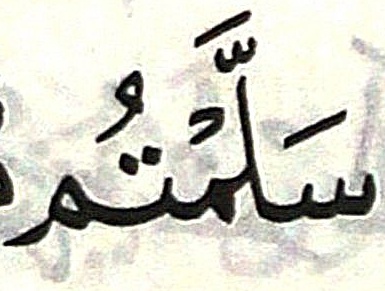 سَلَّمْتُم